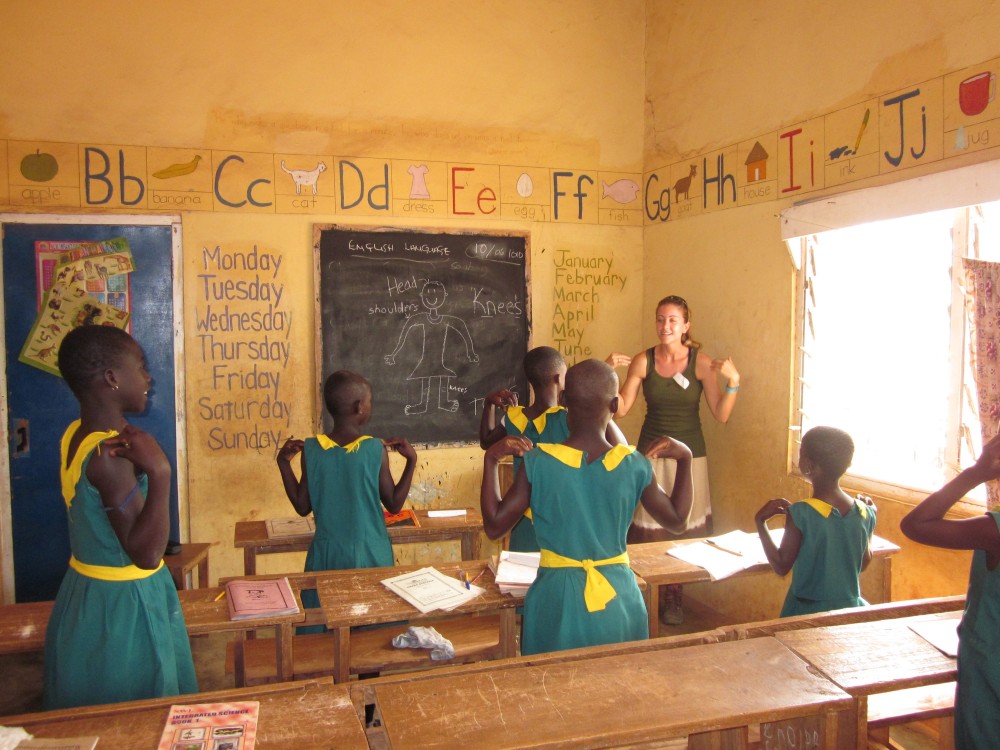 apple
Bb
banana
Cc
cat
Dd
dress
Ee
egg
Ff
fish
Gg
goat
Hh
house
Ii
ink
Jj
jug
Monday
Tuesday
Wednesday
Thursday
Friday
Saturday
Sunday
ENGLISH LANGUAGE
Head
shoulders
Knees
January
February
March
April
May
June
INTEGRATED SCIENCE
BOOK